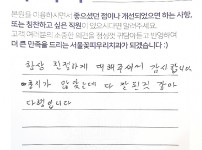 본원을 이용하시면서 좋으셨던 점이나 개선되었으면 하는 사항,
또는 칭찬하고 싶은 직원이 있으시다면 말려주세요.
고객 여러분의 소중한 의견을 정성껏 귀담아듣고 반영하여
더 큰 만족을 드리는 서울꽃피우리치과가 되겠습니다 :)
항상 친절하게 대해주셔서 감사합니다
충치가 많았는데 다 된것 같아
다행입니다